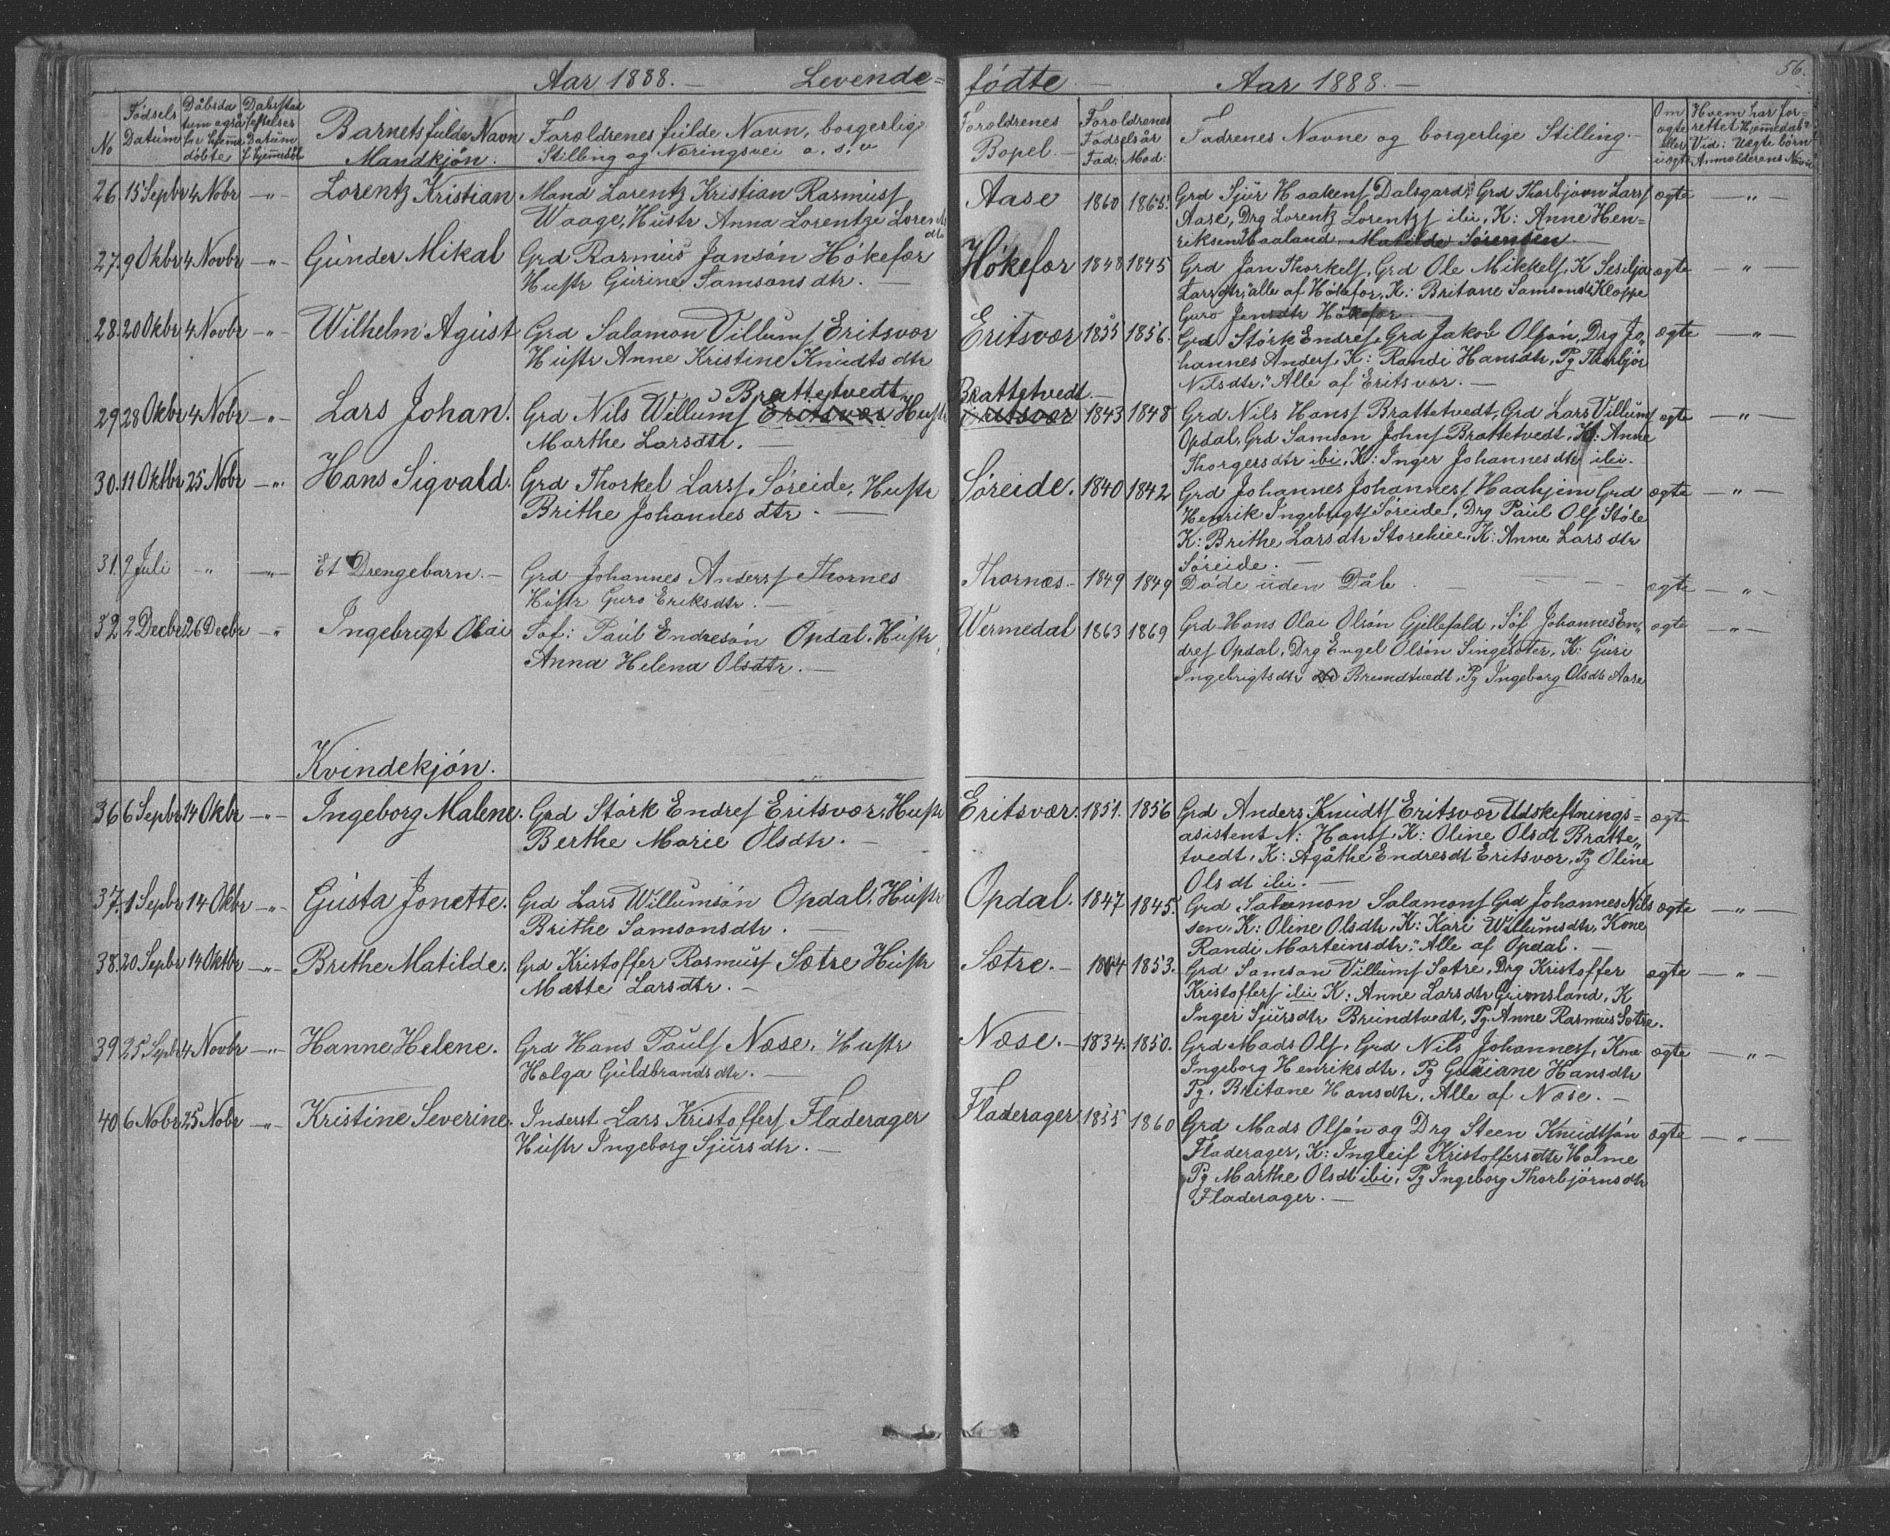 Aar 1888. — Levende=
fødte — Aar 1888. — 56.
No
Fødsels Datum
Dåbsda tum også for hjemme døbte
Barnets fulde Navn
Mandkjøn.
Foroldrenes fulde Navn, borgerlig
Stilling og Næringsvei o. s. v
Foroldrenes Bopel. —
Foroldrenes Fødselsår
Fad: Mod:
Fadrenes Navne og borgerlige Stilling —
Om ægte eller uægte
Hvem har for-
rettet Hjemmedab
Vid: Uegte børn
Anmolderens Navn
26. 15 Sepbr 4 Nobr — " — Lorentz Kristian Mand Lorentz Kristian Rasmusſ
Waage, Hustr Anna Lorentze Lorends
dtr
Aase 1860 1865. Grd Sjur Haakenſ Dalsgard, Grd Thorbjøvn Larsſ ægte — " —
Aase, Drg Lorentz Lorentzſ ibi, K: Anne Hen-
riksen Haaland Matilde Sørensen —
27. 9 Okbr 4 Novbr — " — Gunder Mikal Grd Rasmus Jansøn Høkefær
Hustr Gurine Samsonsdtr. —
Høkefær 1848 1845 Grd Jan Thorkelſ, Grd Ole Mikkelſ, K Sesilja ægte — " —
Larsdtr, alle af Høkefor, K: Britane Samsonsdt Kloppe
Guro Jensdtr Høkefær —
28. 20 Okbr 4 Novbr — " — Wilhelm Agust Grd Salamon Villumſ Eritsvær
Hustr Anne Kristine Knudtsdtr
Eritsvær 1855 1856. Grd Størk Endreſ, Grd Jakob Olsøn, Drg Jo- ægte — " —
hannes Andersſ K: Randi Hansdtr, Pg Thorbjør
Nilsdtr. Alle af Eritsvær. —
Brattetvedt
29. 28 Okbr 4 Nobr — " — Lars Johan. Grd Nils Willumſ Eritsvær Hustr
Marthe Larsdtr. —
Brattetvedt —
Eritsvær 1843 1848 Grd Nils Hansſ Brattetvedt, Grd Lars Villumſ ægte — " —
Opdal, Grd Samson Johnſ Brattetvedt, K: Anne
Thorgersdtr ibi, K: Inger Johannesdtr ibi.
30. 11 Oktbr 25 Nobr — " — Hans Sigvald. Grd Thorkel Larsſ Søreide, Hustr
Brithe Johannesdtr. —
Søreide. 1840 1842 Grd Johannes Johannesſ Haahjem Grd ægte — " —
Henrik Ingebrigtſ Søreide, Drg Paul Olſ Støle
K: Brithe Larsdtr Storehiee, K: Anne Larsdtr
Søreide. —
31. 7 Juli — " — Et Drengebarn. — Grd Johannes Andersſ Thornes
Hustr Guro Eriksdtr. —
Thornæs — 1849 1849 Døde uden Dåb — ægte — " —
32. 2 Decbr 26 Decbr — " Ingebrigt Olai Søf: Paul Endresøn Opdal. Hustr
Anna Helena Olsdtr. —
Wermedal 1863 1869 Grd Hans Olai Olsøn Gjellefald, Søf Johannes En- ægte — " —
dreſ Opdal, Drg Engel Olsøn Singesøter, K: Guri
Ingebrigtsdtr Brundtvedt, Pg Ingeborg Olsdtr Aase
Kvindekjøn.
36. 6 Sepbr 14 Okbr — " — Ingeborg Malene. Grd Størk Endreſ Eritsvær, Hustr
Berthe Marie Olsdtr. —
Eritsvær. 1851. 1856 Grd Anders Knudtſ Eritsvær Udskiftnings= ægte
asistent N: Hansſ, K: Oline Olsdt Bratte-
tvedt, K: Agåthe Endresdt Eritsvær, Pg Oline
Olsdt ibi. —
37. 1 Sepbr 14 Okbr — " — Gusta Jonette. Grd Lars Willumsøn Opdal, Hustr
Brithe Samsonsdtr. —
Opdal. 1847 1845. Grd Salomon Salamonſ Grd Johannes Nils ægte — " —
sen, K: Oline Olsdtr, K: Kari Willumsdtr, Kone
Randi Marteinsdtr. Alle af Opdal. —
38. 20 Sepbr 14 Oktbr — " — Brithe Matilde. Grd Kristoffer Rasmusſ Sætre Hustr
Mætte Larsdtr. —
Sætre. — 1844 1853. Grd Samson Villumſ Sætre, Drg Kristoffer ægte — " —
Kristofferſ ibi K: Anne Larsdtr Grimsland, K
Inger Sjursdtr Brundtvedt, Pg. Anne Rasmus Sætre.
39. 25 Sepbr 4 Novbr — " — Hanne Helene. Grd Hans Paulſ Næse. Hustr
Helga Guldbrandsdtr. —
Næse. — 1834. 1850. Grd Mads Olſ, Grd Nils Johannesſ, Kone ægte — " —
Ingeborg Henriksdtr, Pg Guriane Hansdtr
Pg. Britane Hansdtr, Alle af Næse. —
40. 6 Nobr 25 Nobr — " — Kristine Severine. Inderst Lars Kristofferſ Fladerager
Hustr Ingeborg Sjursdtr. —
Fladerager 1855 1860 Grd Mads Olsøn og Drg Steen Knudtsøn ægte — " —
Fladerager, K: Ingleif Kristoffersdtr Holme
Pg Marthe Olsdt ibi, Pg Ingeborg Thorbjørnsdtr
Fladerager. —